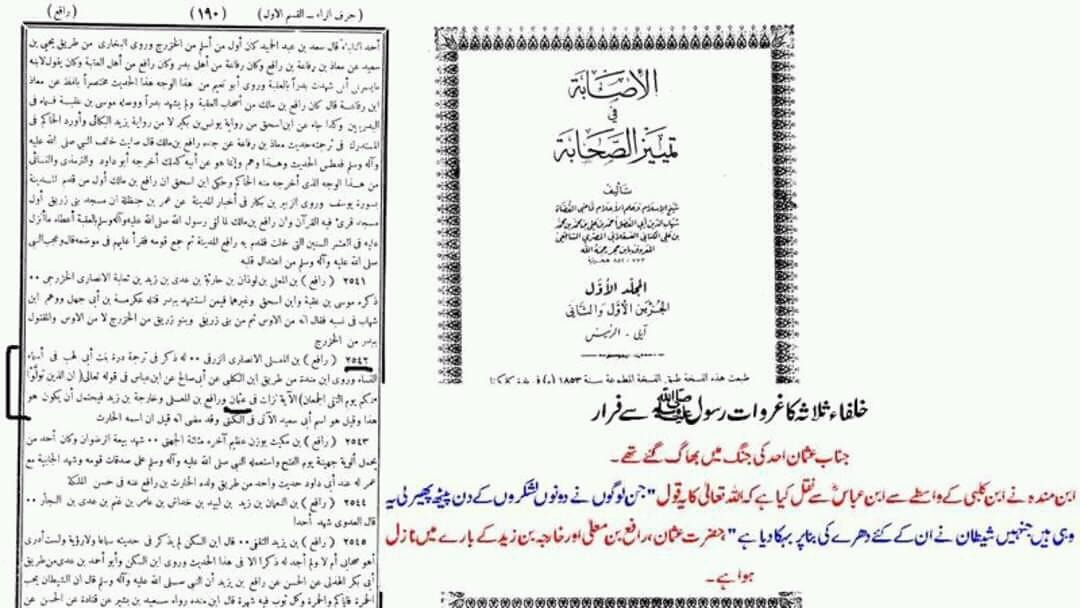 ( حرف الراء ـ القسم الأول )
( ١٩٠ )
( رافع )
أحد النقباء قال سعد بن عبد الحميد كان أول من أسلم من الخزرج وروى البخارى من طريق يحيى بن
سعيد عن معاذ بن رفاعة بن رافع وكان رفاعة من أهل بدر وكان رافع من أهل العقبة وكان يقول لابنه
مايسرنى أنى شهدت بدرا بالعقبة وروى أبو نعيم من هذا الوجه هذا الحديث مختصرا بلفظ عن معاذ
ابن رفاعة قال كان رافع بن مالك من أصحاب العقبة ولم يشهد بدرا ووصله موسى بن عقبة فسماه فى
البدريين وكذا جاء عن ابن اسحق من رواية يونس بن بكير لا من رواية يزيد البكائى وأورد الحاكم فى
المستدرك فى ترجمته حديث معاذ بن رفاعة عن جده رافع بن مالك قال صليت خلف النبى صلى الله عليه
وآله وسلم فعطس الحديث وهذا وهم وإنما هو عن أبيه كذلك أخرجه أبو داود والترمذى والنسائى
من هذا الوجه الذى أخرجه منه الحاكم وحكى ابن اسحق ان رافع بن مالك أول من قدم المدينة
بسورة يوسف وروى الزبير بن بكار فى أخبار المدينة عن عمر بن حنظلة ان مسجد بنى زريق أول
مسجد قرئ فيه القرآن وان رافع بن مالك لما لقى رسول الله صلى الله عليه وآله وسلم بالعقبة أعطاه ماأنزل
عليه فى العشر السنين التى خلت فقدم به رافع المدينة ثم جمع قومه فقرأ عليهم فى موضعه قال وعجب النبى
صلى الله عليه وآله وسلم من اعتدال قبلته
٢٥٤١ ( رافع ) بن المعلى بن لوذان بن حارثة بن عدى بن زيد بن ثعلبة الانصارى الخزرجى ٠٠
ذكره موسى بن عقبة وابن اسحق وغيرهما فيمن استشهد ببدر قتله عكرمة بن أبى جهل ووهم ابن
شهاب فى نسبه فقال انه من الاوس ثم من بنى زريق وبنو زريق من الخزرج لا من الاوس والمقتول
ببدر من الخزرج
٢٥٤٢ ( رافع ) بن المعلى الانصارى الزرقى ٠٠ له ذكر فى ترجمة درة بنت أبى لهب فى أسماء
النساء وروى ابن مندة من طريق ابن الكلبى عن أبى صالح عن ابن عباس فى قوله تعالى ( ان الذين تولوا
منكم يوم التقى الجمعان ) الآية نزلت فى عثمان ورافع بن المعلى وخارجة بن زيد فيحتمل أن يكون هو
هذا وقيل هو اسم أبى سعيد الآتى فى الكنى وقد مضى انه قيل ان اسمه الحارث
٢٥٤٣ ( رافع ) بن مكيث بوزن عظيم آخره مثلثة الجهنى ٠٠ شهد بيعة الرضوان وكان أحد من
يحمل ألوية جهينة يوم الفتح واستعمله النبى صلى الله عليه وآله وسلم على صدقات قومه وشهد الجابية مع
عمر له عند أبى داود حديث واحد من طريق ولده الحارث بن رافع عنه فى حسن الملكة
٢٥٤٤ ( رافع ) بن النعمان بن زيد بن لبيد بن خداش بن عامر بن غنم بن عدى بن النجار ٠٠
قال العدوى شهد أحدا
٢٥٤٥ ( رافع ) بن يزيد الثقفى ٠٠ قال ابن السكن لم يذكر فى حديثه سماعا ولارؤية ولست أدرى
أهو صحابى أم لا ولم أجد له ذكرا الا فى هذا الحديث وروى ابن السكن وأبو أحمد بن عدى من طريق
أبى بكر الهذلى عن الحسن عن رافع بن يزيد أن النبى صلى الله عليه وسلم قال ان الشيطان يحب
الحمرة فاياكم والحمرة وكل ثوب فيه شهرة قال ابن منده رواه سعيد بن بشير عن قتادة عن الحسن عن
الإصابة
في
تمييز الصحابة
تأليف
شيخ الإسلام وعلم الأعلام قاضي القضاة
شهاب الدين أبي الفضل أحمد بن علي بن محمد بن محمد
بن علي الكناني العسقلاني المصري الشافعي
المعروف بابن حجر رحمه الله
٧٧٣ - ٨٥٢ هجرية
المجلد الأول
الجزءين الأول والثاني
آبي - الرئيس
طبعت هذه النسخة طبق النسخة المطبوعة سنة ١٨٥٣ (م) في بلدة كلكتا
خلفاء ثلاثہ کا غزوات رسول ﷺ سے فرار
جناب عثمان احد کی جنگ میں بھاگ گئے تھے۔
ابن مندہ نے ابن کلبی کے واسطے سے ابن عباسؓ سے نقل کیا ہے کہ اللہ تعالیٰ کا یہ قول "جن لوگوں نے دونوں لشکروں کے دن پیٹھ پھیر لی یہ
وہی ہیں جنہیں شیطان نے ان کے کئے دھرے کی بنا پر بہکا دیا ہے" حضرت عثمان، رافع بن معلی اور خارجہ بن زید کے بارے میں نازل
ہوا ہے۔